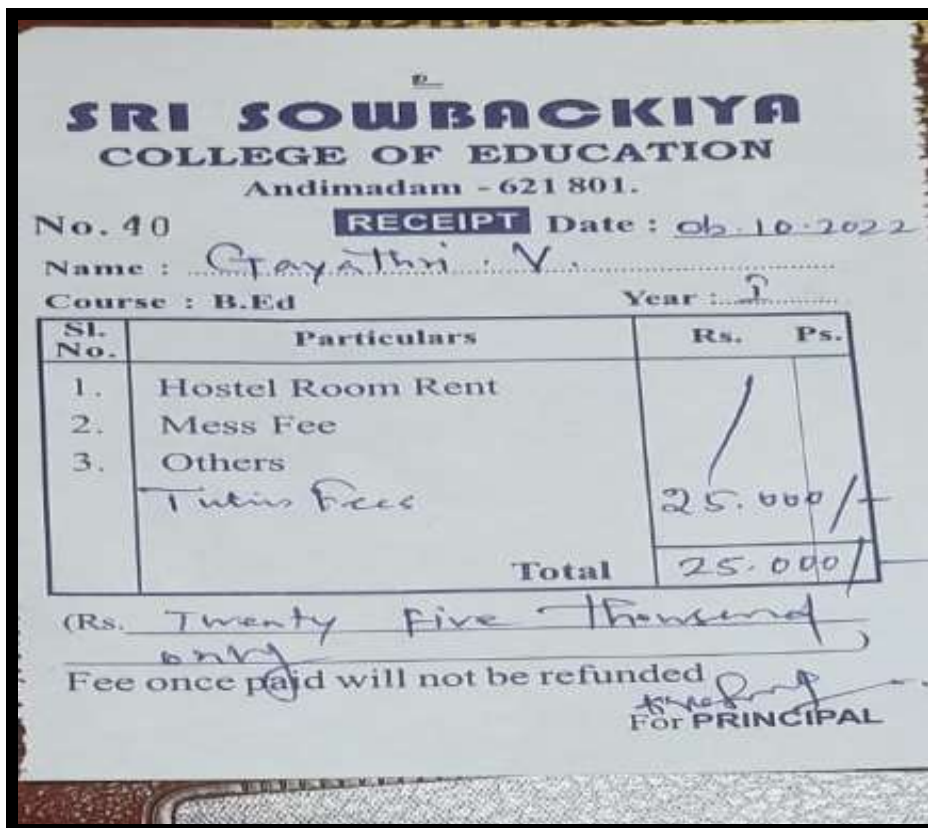 SRI SOWBACKIYA
COLLEGE OF EDUCATION
Andimadam - 621 801.
No. 40 RECEIPT Date : 06.10.2022
Name : Gayathri. V.
Course : B.Ed Year : I
Sl. No. Particulars Rs. Ps.
1. Hostel Room Rent
2. Mess Fee
3. Others
Fees 25.000/-
Total 25.000/-
(Rs. Twenty Five Thousand
only )
Fee once paid will not be refunded
For PRINCIPAL